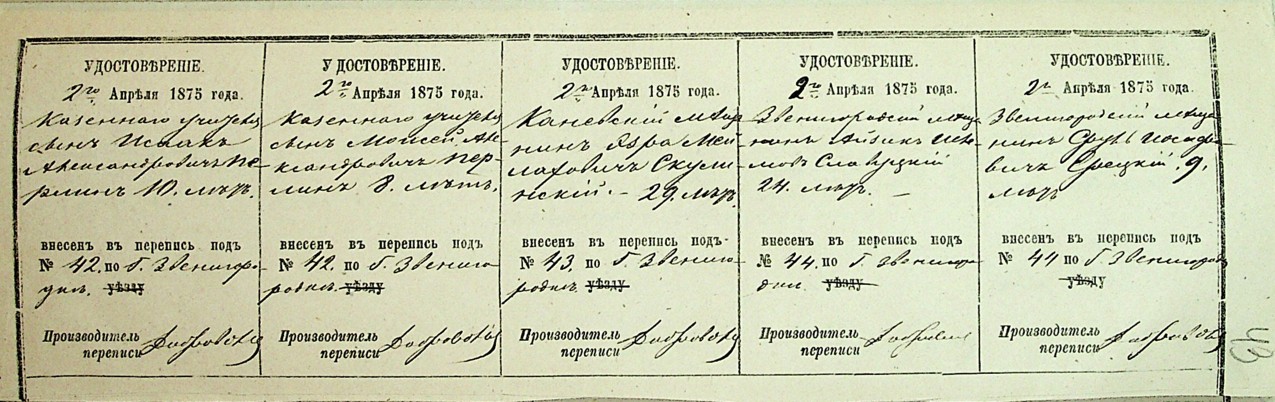 УДОСТОВѢРЕНІЕ.
2го Апрѣля 1875 года.
Казеннаго учителя
сынъ Исаакъ
Александровичъ Пе-
рлинъ 10. лѣтъ.
внесенъ въ перепись подъ
№ 42. по г. Звенигоро-
дкѣ. уѣзду
Производитель
переписи
УДОСТОВѢРЕНІЕ.
2го Апрѣля 1875 года.
Казеннаго учителя
сынъ Моисей Але-
ксандровичъ Пер-
линъ 8. лѣтъ.
внесенъ въ перепись подъ
№ 42. по г. Звениго-
родкѣ. уѣзду
Производитель
переписи
УДОСТОВѢРЕНІЕ.
2го Апрѣля 1875 года.
Каневскій мѣща-
нинъ
29. лѣтъ
внесенъ въ перепись подъ
№ 43. по г. Звениго-
родкѣ. уѣзду
Производитель
переписи
УДОСТОВѢРЕНІЕ.
2го Апрѣля 1875 года.
Звенигородскій мѣща-
нинъ Айзикъ
24. лѣтъ.
внесенъ въ перепись подъ
№ 44. по г. Звенигоро-
дкѣ. уѣзду
Производитель
переписи
УДОСТОВѢРЕНІЕ.
2го Апрѣля 1875 года.
Звенигородскій мѣща-
нинъ Сруль
9.
лѣтъ
внесенъ въ перепись подъ
№ 44 по г. Звенигород
уѣзду
Производитель
переписи
43